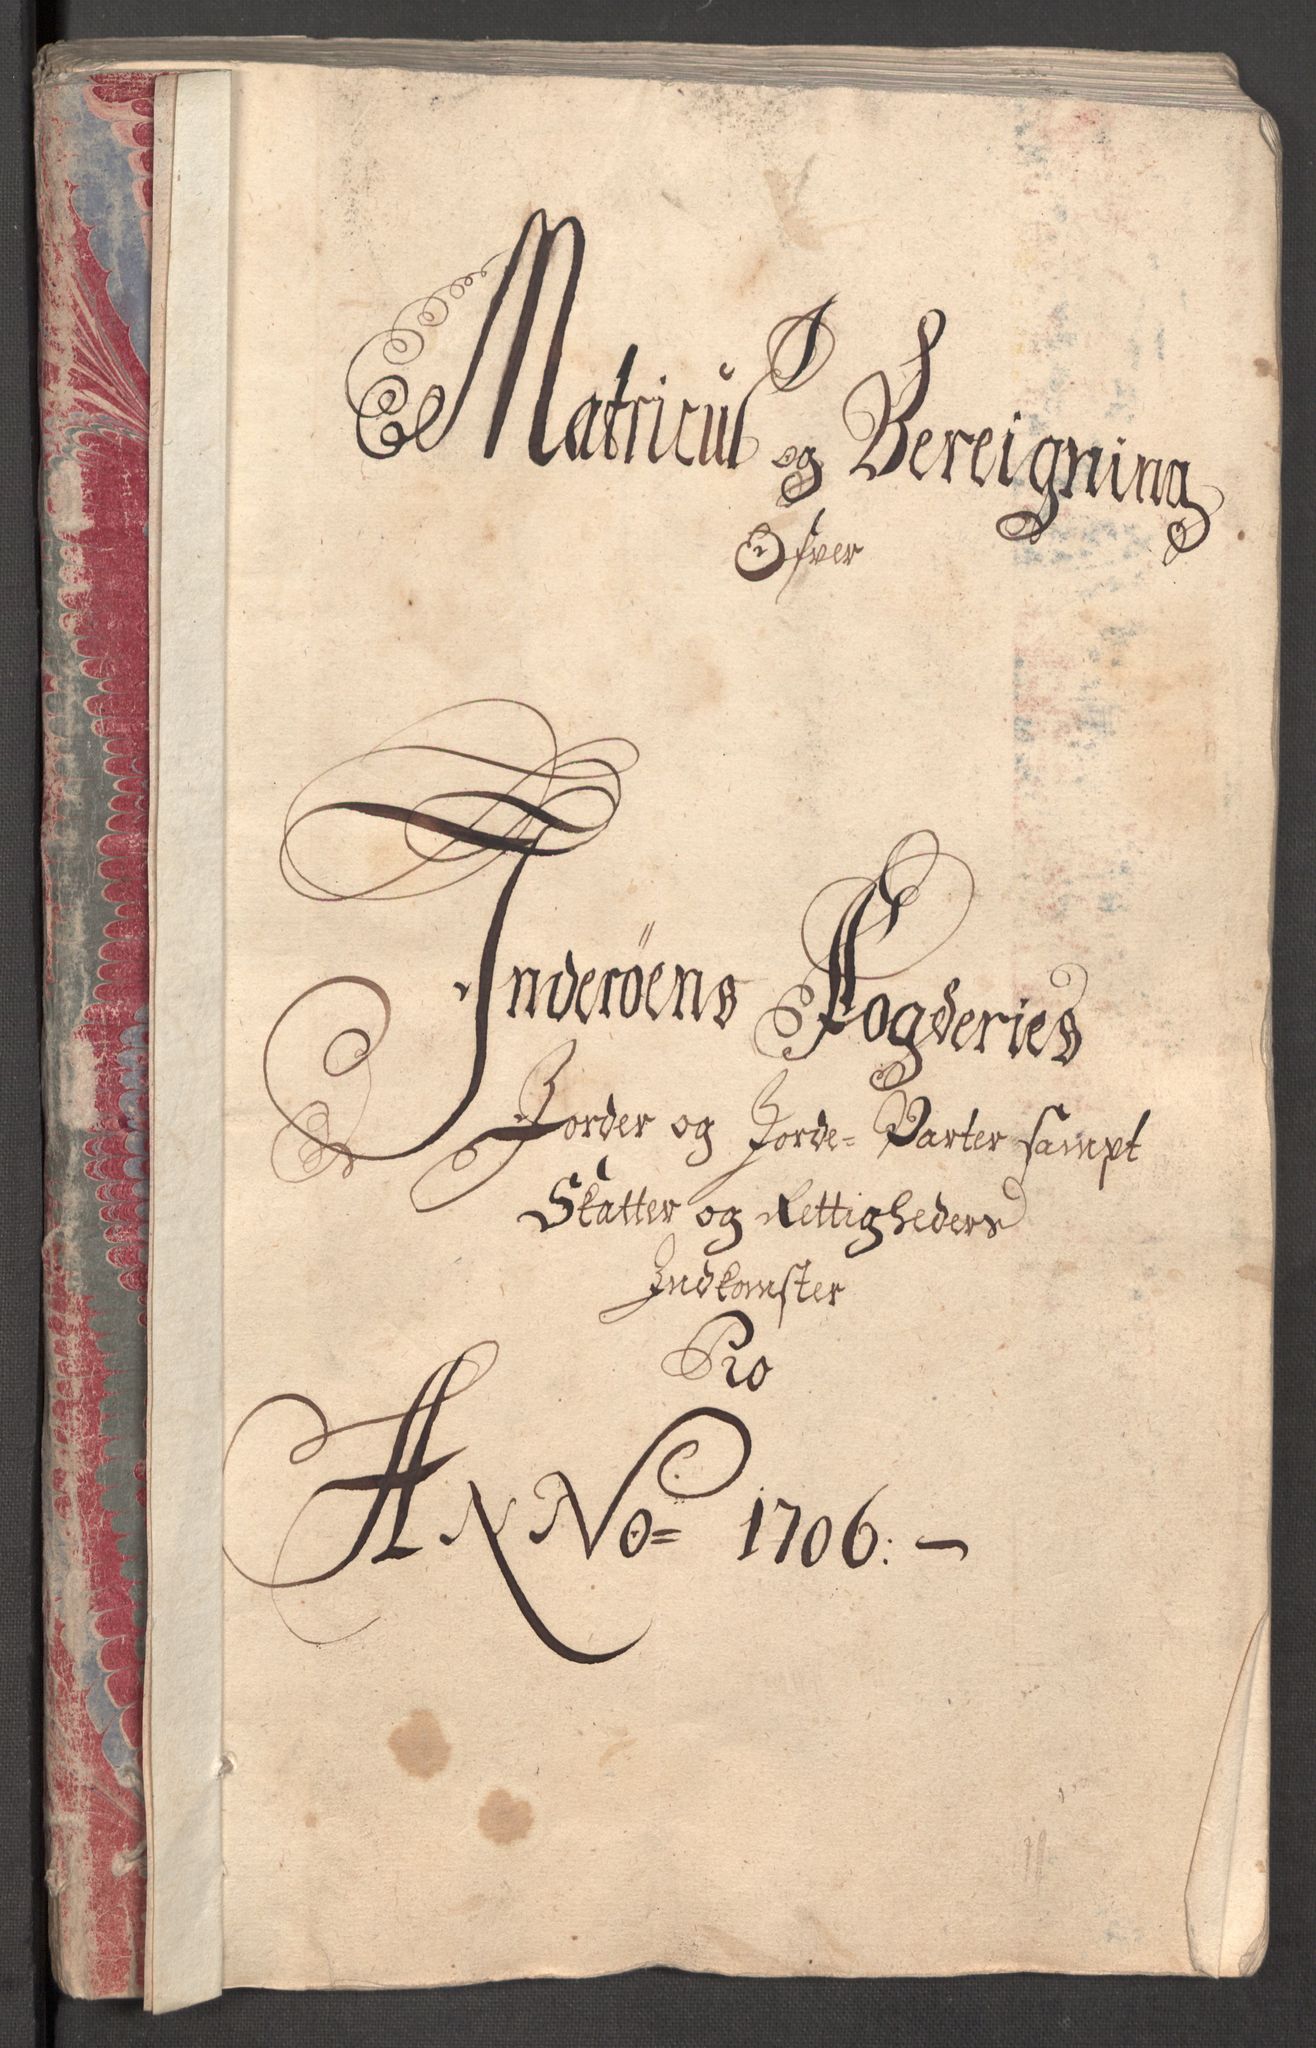 Matricul og Bereigning
Ofver
Inderöens Fogderies
Jorder og Jorde= Parter sampt
Skatter og Rettigheders
Indkomster
Pro
ANNo= 1706: